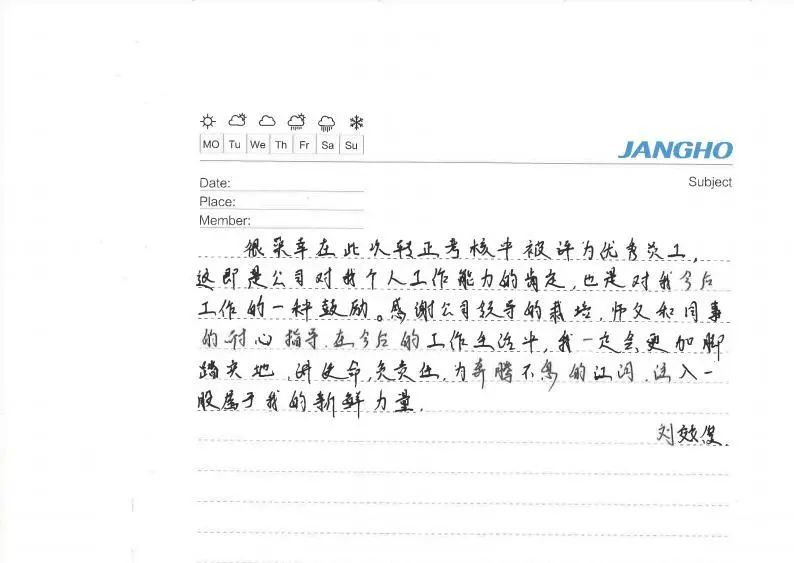 MO Tu We Th Fr Sa Su
JANGHO
Date:
Subject
Place:
Member:
很荣幸在此次转正考核中被评为优秀员工,
这即是公司对我个人工作能力的肯定,也是对我今后
工作的一种鼓励。感谢公司领导的栽培,师父和同事
的耐心指导.在今后的工作生活中,我一定会更加脚
踏实地,讲使命,负责任,为奔腾不息的江河,注入一
股属于我的新鲜力量.
刘效俊